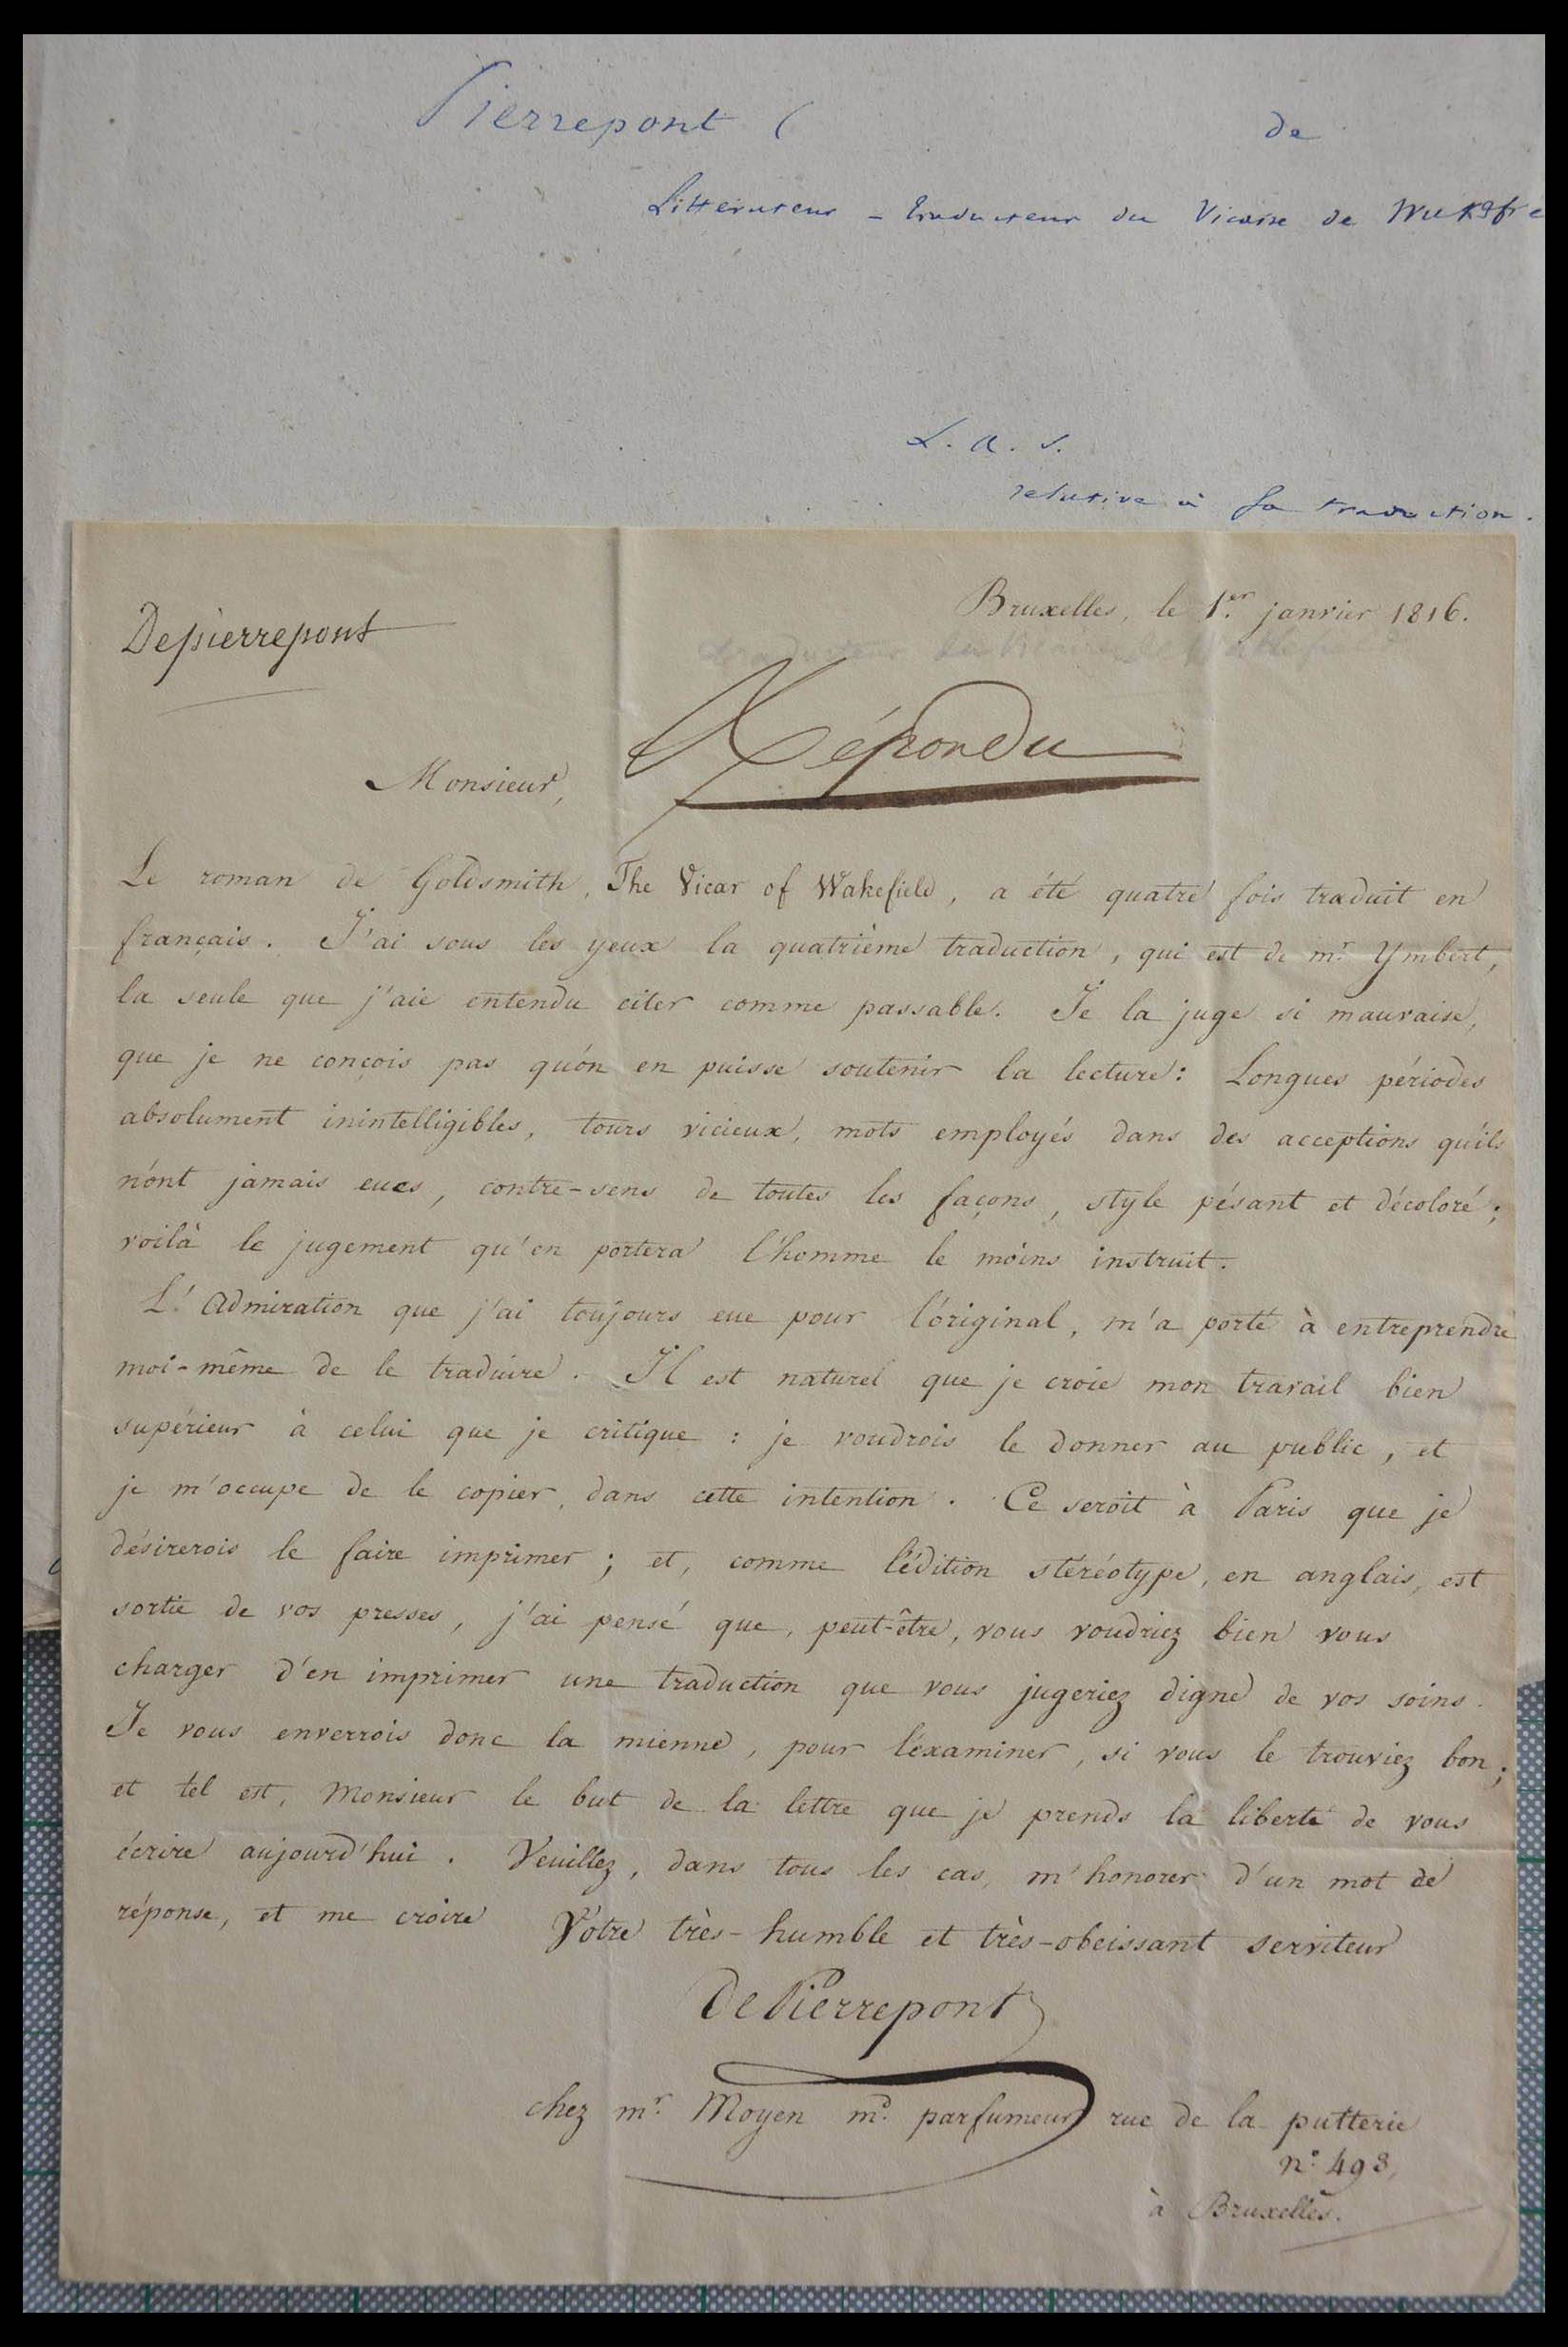 Pierrepont ( de
Littérateur - traducteur du Vicaire de
L. a. s.
relative à sa traduction.
Bruxelles, le 1.er janvier 1816.
Depierrepont
traducteur du Vicaire de Wakefield
Répondu
Monsieur,
Le roman de Goldsmith, The Vicar of Wakefield, a été quatre fois traduit en
français. J'ai sous les yeux la quatrième traduction, qui est de mr. Ymbert,
la seule que j'aie entendu citer comme passable. Je la juge si mauvaise,
que je ne conçois pas qu'on en puisse soutenir la lecture: Longues périodes
absolument inintelligibles, tours vicieux, mots employés dans des acceptions qu'ils
n'ont jamais eues, contre-sens de toutes les façons, style pésant et décoloré;
voilà le jugement qu'en portera l'homme le moins instruit.
L'Admiration que j'ai toujours eue pour l'original, m'a porté à entreprendre
moi-même de le traduire. Il est naturel que je croie mon travail bien
supérieur à celui que je critique : je voudrois le donner au public, et
je m'occupe de le copier, dans cette intention. Ce seroit à Paris que je
désirerois le faire imprimer; et, comme l'édition stéréotype, en anglais, est
sortie de vos presses, j'ai pensé que, peut-être, vous voudriez bien vous
charger d'en imprimer une traduction que vous jugeriez digne de vos soins.
Je vous enverrois donc la mienne, pour l'examiner, si vous le trouviez bon;
et tel est, Monsieur le but de la lettre que je prends la liberté de vous
écrire aujourd'hui. Veuillez, dans tous les cas, m'honorer d'un mot de
réponse, et me croire Vôtre très-humble et très-obeissant serviteur
De Pierrepont
chez mr. Moyen md. parfumeur rue de la putterie
n.° 493,
à Bruxelles.